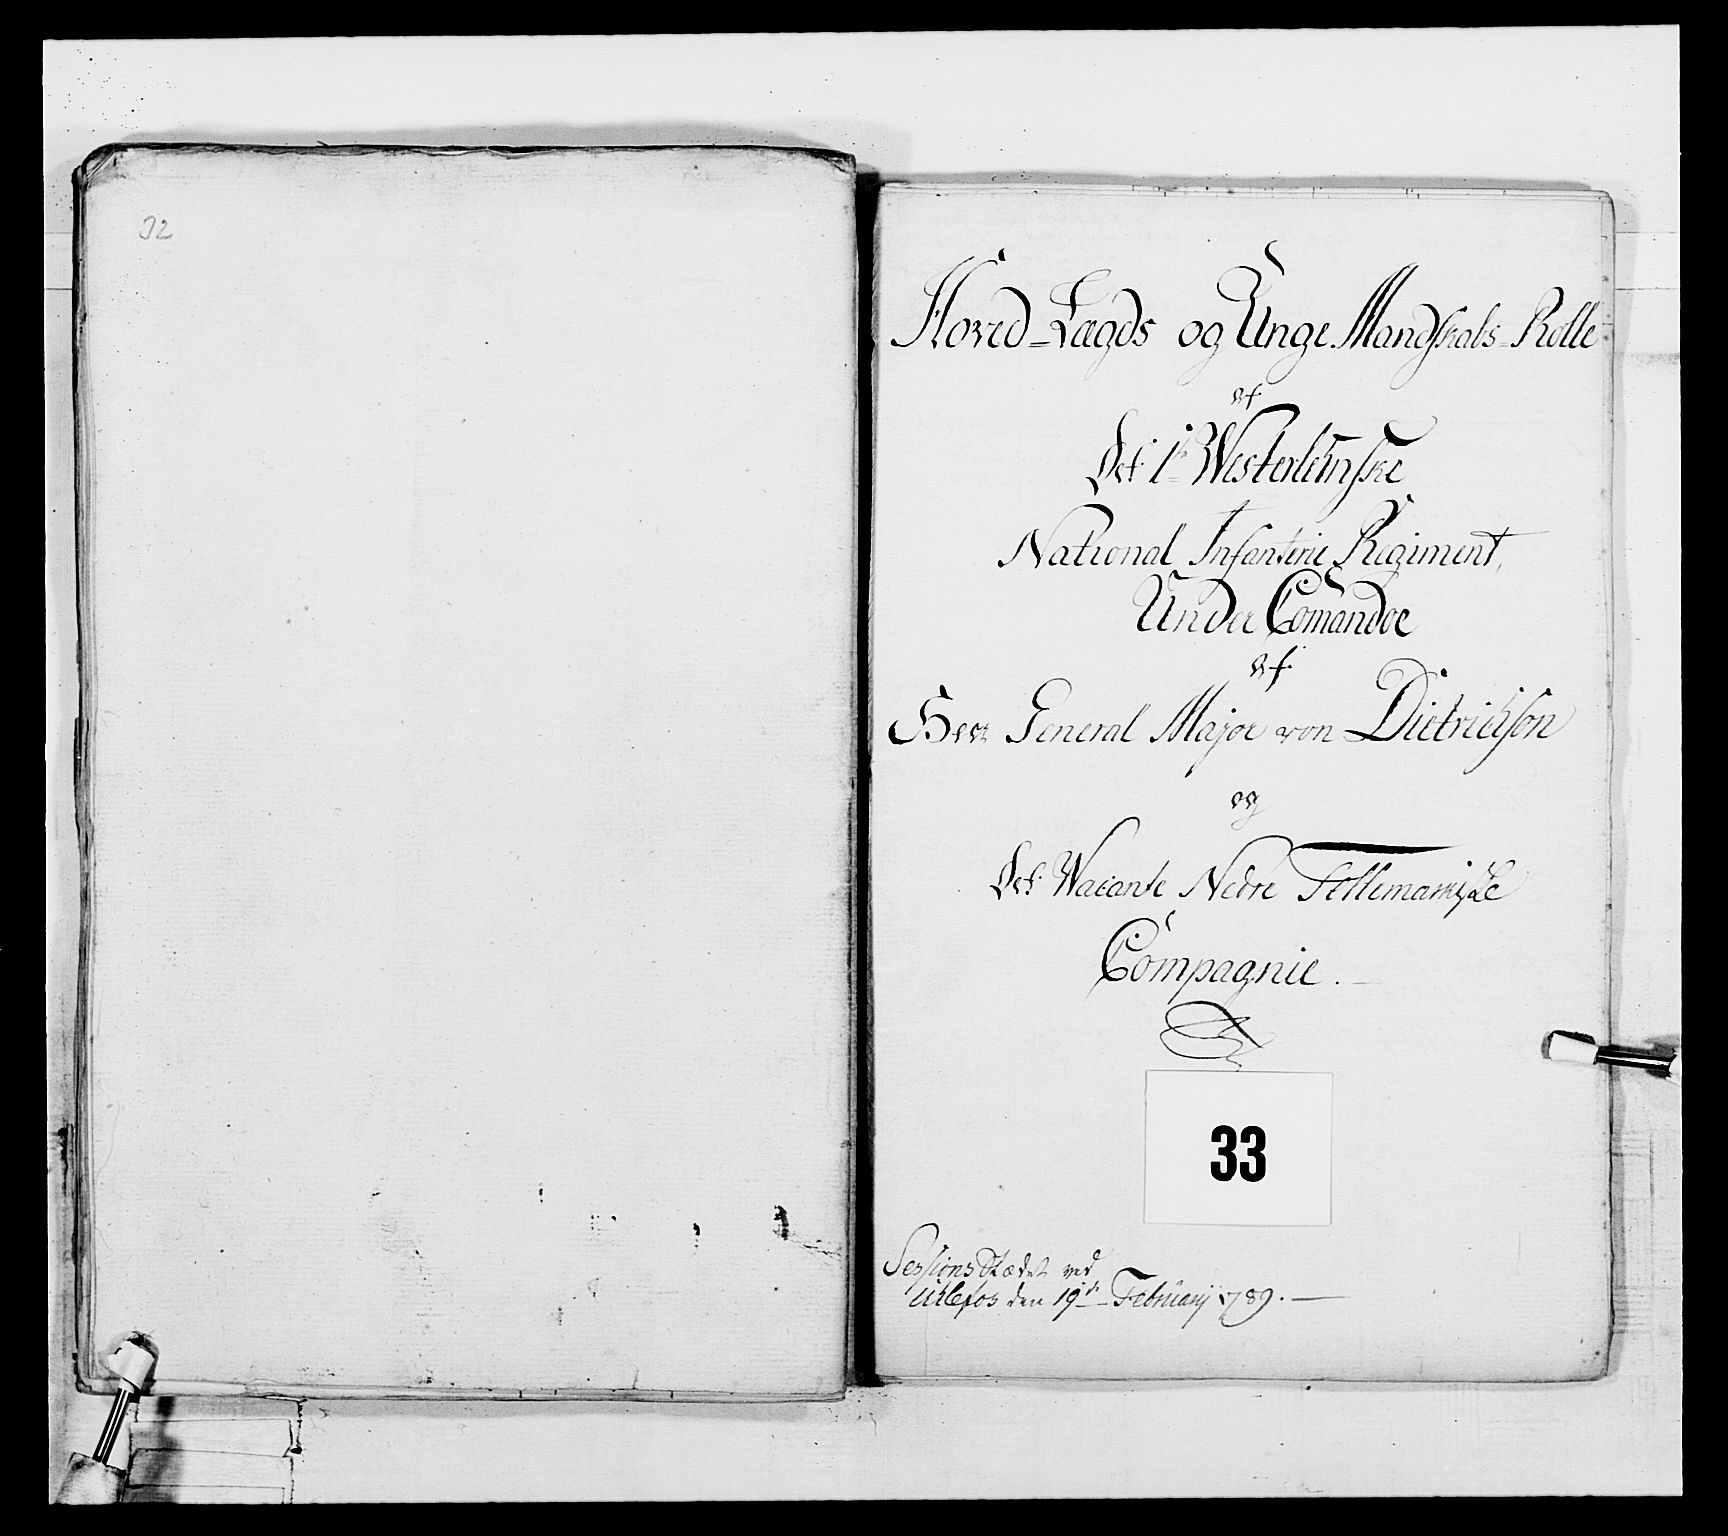 32
Hoved-Lægds og Unge Mandskabs-Rolle
af
Det 1te Westerlehnske
National Infanterie Regiment,
Under Comandoe
af
Herr General Major von Dietrichson
og
Det Wacante Nedre Tellemarkske
Compagnie.
33
Sessions Stædet ved
Ulefos den 19de Februarij 1789.